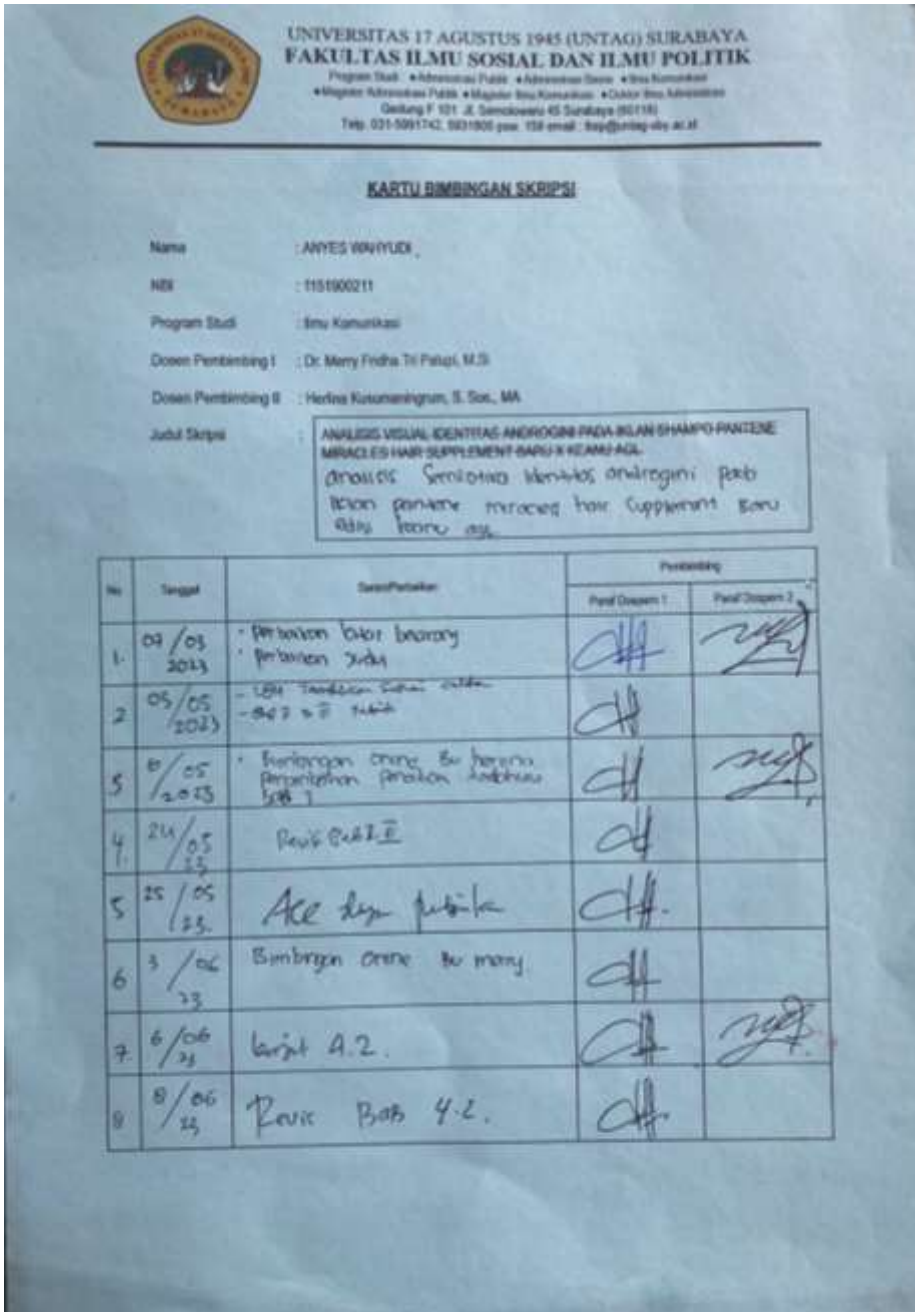 UNIVERSITAS 17 AGUSTUS 1945 (UNTAG) SURABAYA
FAKULTAS ILMU SOSIAL DAN ILMU POLITIK
Program Studi ♦Administrasi Publik ♦Administrasi Bisnis ♦Ilmu Komunikasi
♦Magister Administrasi Publik ♦Magister Ilmu Komunikasi ♦Doktor Ilmu Administrasi
Gedung F 101 Jl. Semolowaru 45 Surabaya (60118)
Telp. 031-5991742, 5931800 psw. 159 email : fisip@untag-sby.ac.id
KARTU BIMBINGAN SKRIPSI
Nama : ANYES WAHYUDI
NBI : 1151900211
Program Studi : Ilmu Komunikasi
Dosen Pembimbing I : Dr. Merry Fridha Tri Palupi, M.Si
Dosen Pembimbing II : Herlina Kusumaningrum, S. Sos., MA
Judul Skripsi : ANALISIS VISUAL IDENTITAS ANDROGINI PADA IKLAN SHAMPO PANTENE
MIRACLES HAIR SUPPLEMENT BARU X KEANU AGL
analisis Semiotika identitas androgini pada
iklan pantene miracles hair Supplement Baru
keanu agl
No Tanggal Saran/Perbaikan Pembimbing
Paraf Dospem 1 Paraf Dospem 2
1. 07/03 2023 - Perbaikan latar belakang
- perbaikan Judul
2 05/05 2023
3 /05 2023 Bimbingan Bu herlina
bab 1
4. 24/05 23 Revisi Bab I II
5 25/05 23. Acc
6 3/06 23 Bimbingan Bu merry
7 6/06 23 lanjut 4.2.
8 8/06 23 Revisi BAB 4.2.